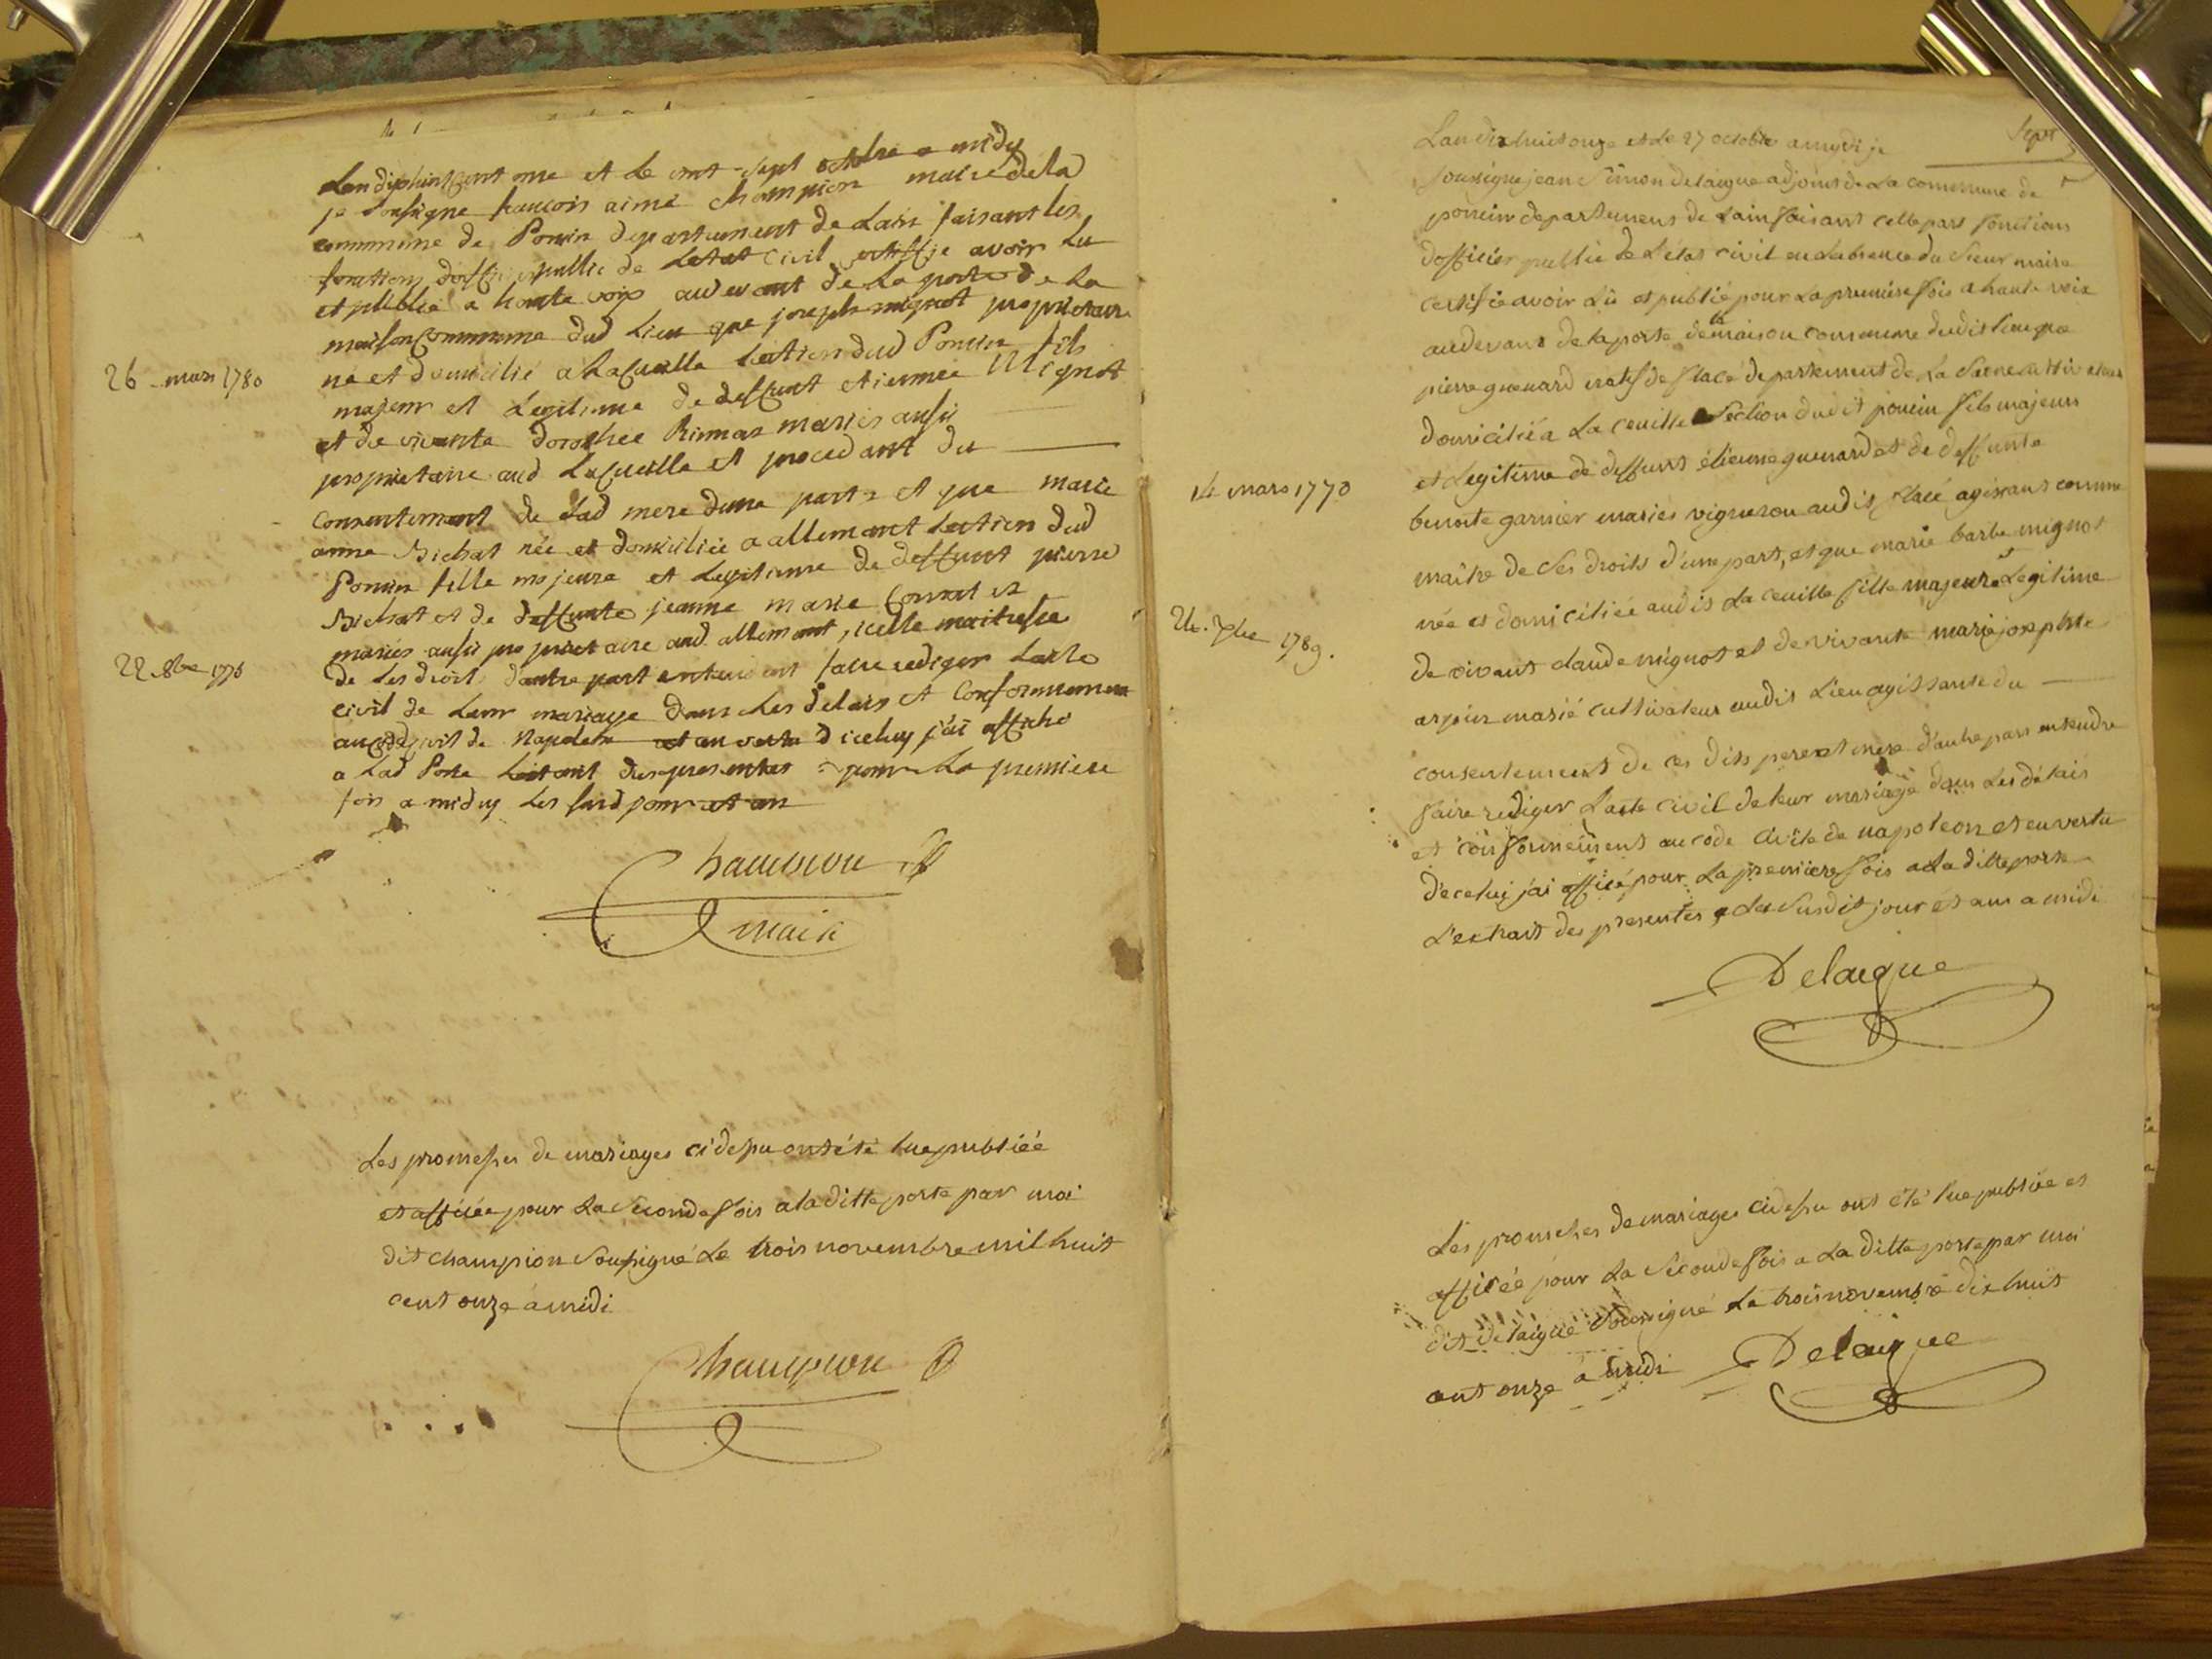 Lan dixhuit cent onze et le vint-sept octobre a midy
je soussigne francois aimé champion maire dela
commune de Poncin departement de Lain faisant les
fonctions dofficier public de Letat civil certiffie avoir lu
et publié a haute voix audevant de la porte de la
maison commune dud lieu que joseph mignot propriétaire
26 mars 1780
né et domicilié a Lacueille section dud Poncin fils
majeur et Legitime de deffunt etienne Mignot
et de vivante dorothée mariés aussi
propriétaire aud Lacueille et procedant du
consentement de Lad mere dune part et que marie
anne Bichat née et domiciliée a allement section dud
Poncin fille majeure et Legitime de deffunt pierre
Bichat et de deffunte jeanne marie
mariés aussi propriétaire aud allement, icelle maitresse
22 8bre 1776
de ses droits dautre part entendent faire rediger Lacte
civil de Leur mariage dans Les delais et Conformement
au code civil de Napoleon et en vertu diceluy j'ai affiché
a Lad Porte Lextrait des presentes pour La premiere
fois a midy Les susd jour et an
Champion
maire
Les promesses de mariages cidessu ont été lue publiée
et afficée pour La seconde fois a la ditte porte par moi
dit champion soussigné Le trois novembre mil huit
cent onze a midi
Champion
Sept
Lan dix huit onze et Le 27 octobre a mydi je
soussigné jean Simon delaigue adjoint de La commune de
poncin departement de Lain faisant cette part fonctions
d'officier public de L'état civil en Labsence du Sieur maire
certifie avoir Lu et publié pour La premiere fois a haute voix
audevant de la porte de la maison commune dudit lieu que
pierre guenard natif de flacé departement de La Saone et
domicilié a La cueille Section dudit poncin fils majeur
14 mars 1770
et Legitime de deffunt étienne guenard et de deffunte
benoite garnier mariés vigneron audit flacé agissant comme
maitre de ses droits d'une part, et que marie barbe mignot
née et domiciliée audit La cueille fille majeure et Legitime
24. 7bre 1789.
de vivant claude mignot et de vivante marie josephte
marié cultivateur audit Lieu agissante du
consentement de ces dits pere et mere d'autre part entendre
faire rediger Lacte civil de leur mariage dans Les délais
et conformement au code civile de napoleon et en vertu
d'ecelui j'ai afficé pour La premiere fois a La ditte porte
L'extrait des presentes Les Susdit jour et an a midi
Delaigue
Les promesses de mariages cidessu ont été lue publiée et
afficée pour La Seconde fois a La ditte porte par moi
dit delaigue Soussigné Le trois novembre dix huit
cent onze a midi Delaigue